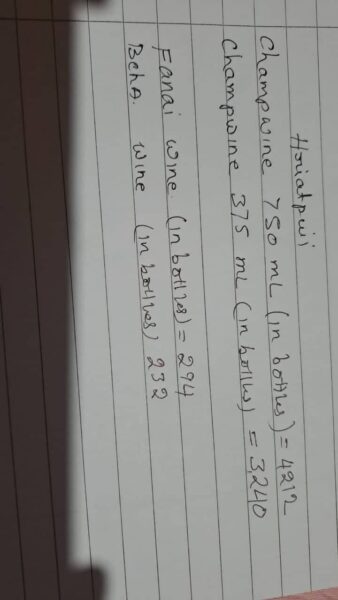 Hriatpuii
Champwine 750 mL (in bottles) = 4212
Champwine 375 mL (in bottles) = 3,240
Fanai wine (in bottles) = 294
BchA. wine (in bottles) 232